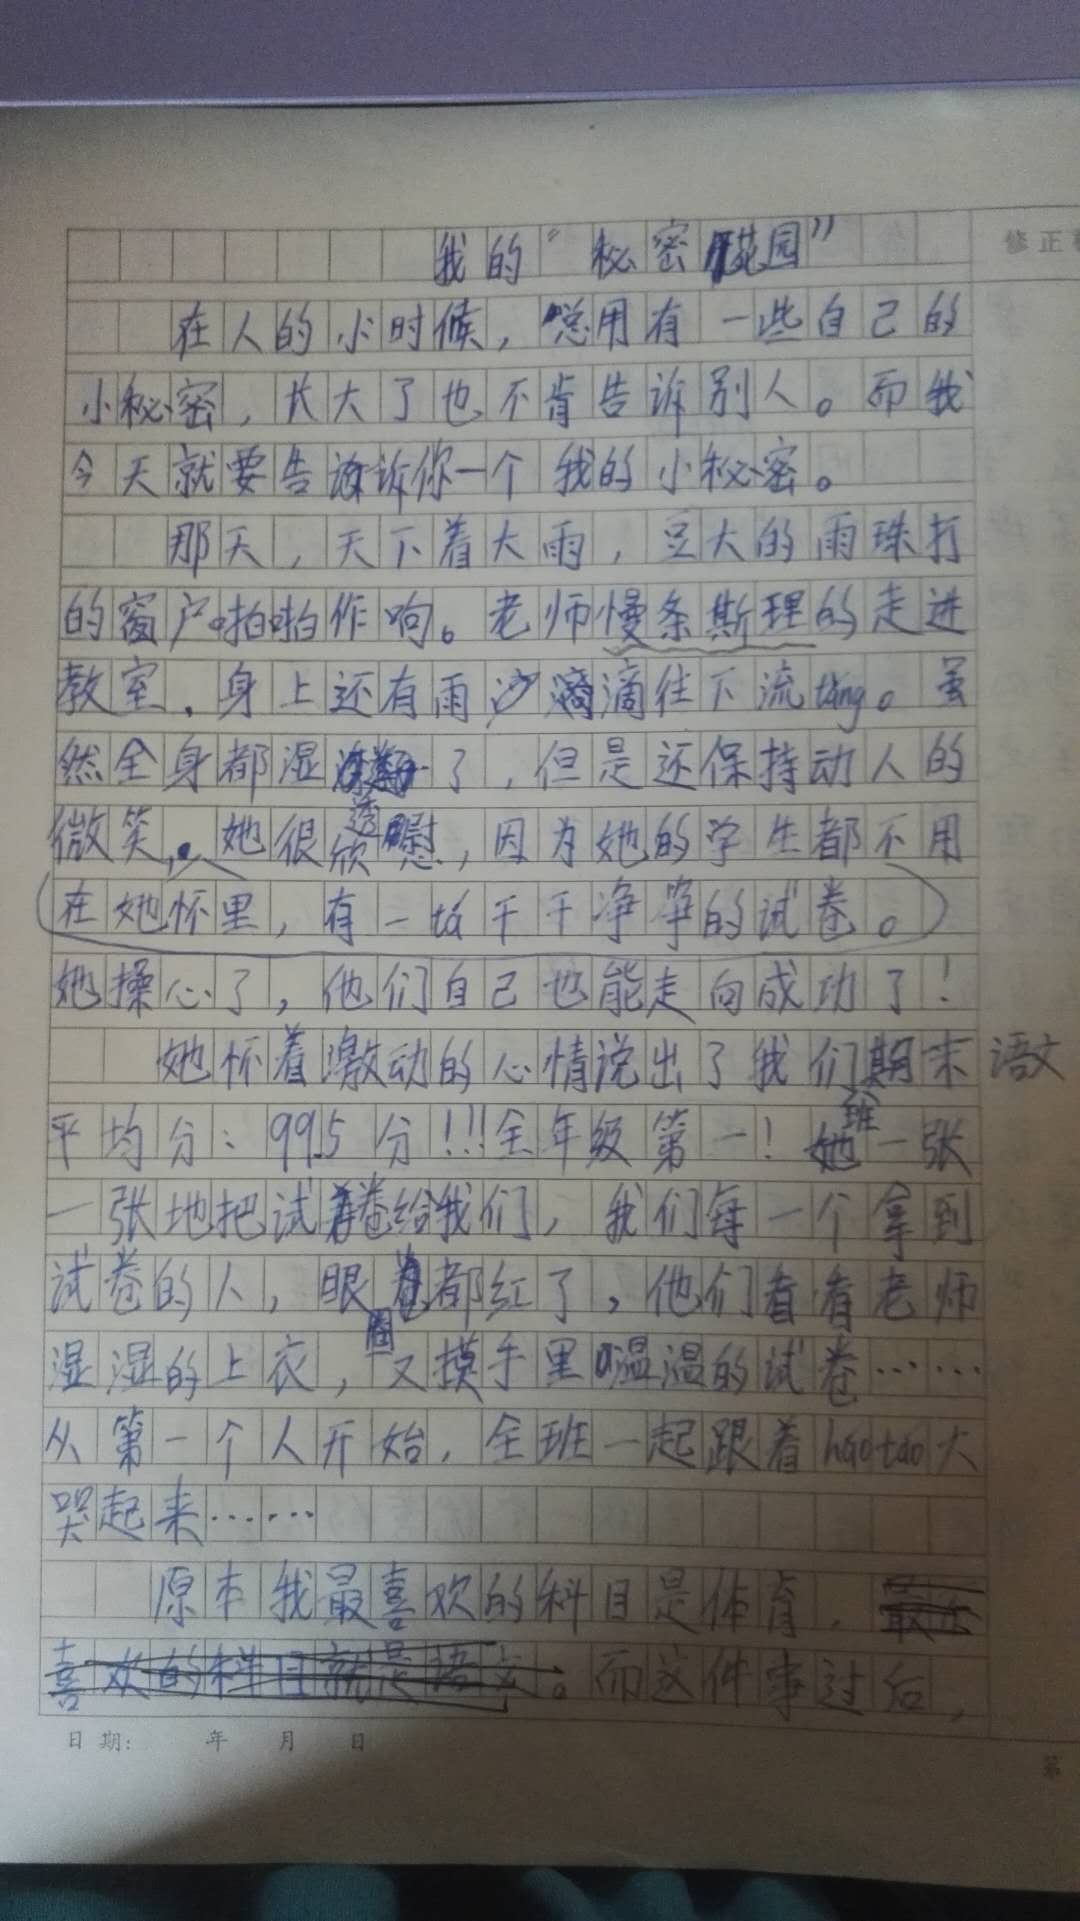 我的“秘密花园”
修正
在人的小时候，总用有一些自己的
小秘密，长大了也不肯告诉别人。而我
今天就要告诉你一个我的小秘密。
那天，天下着大雨，豆大的雨珠打
的窗户啪啪作响。老师慢条斯理的走进
教室，身上还有雨滴往下流tǎng。虽
然全身都湿透了，但是还保持动人的
微笑，她很欣慰，因为她的学生都不用
（在她怀里，有一tá干干净净的试卷。）
她操心了，他们自己也能走向成功了！
她怀着激动的心情说出了我们班期末语文
平均分：99.5分！！！全年级第一！她一张
一张地把试卷给我们，我们每一个拿到
试卷的人，眼圈都红了，他们看看老师
湿湿的上衣，又摸手里温温的试卷……
从第一个人开始，全班一起跟着háotáo大
哭起来……
原本我最喜欢的科目是体育，
而这件事过后，
日期： 年 月 日
第